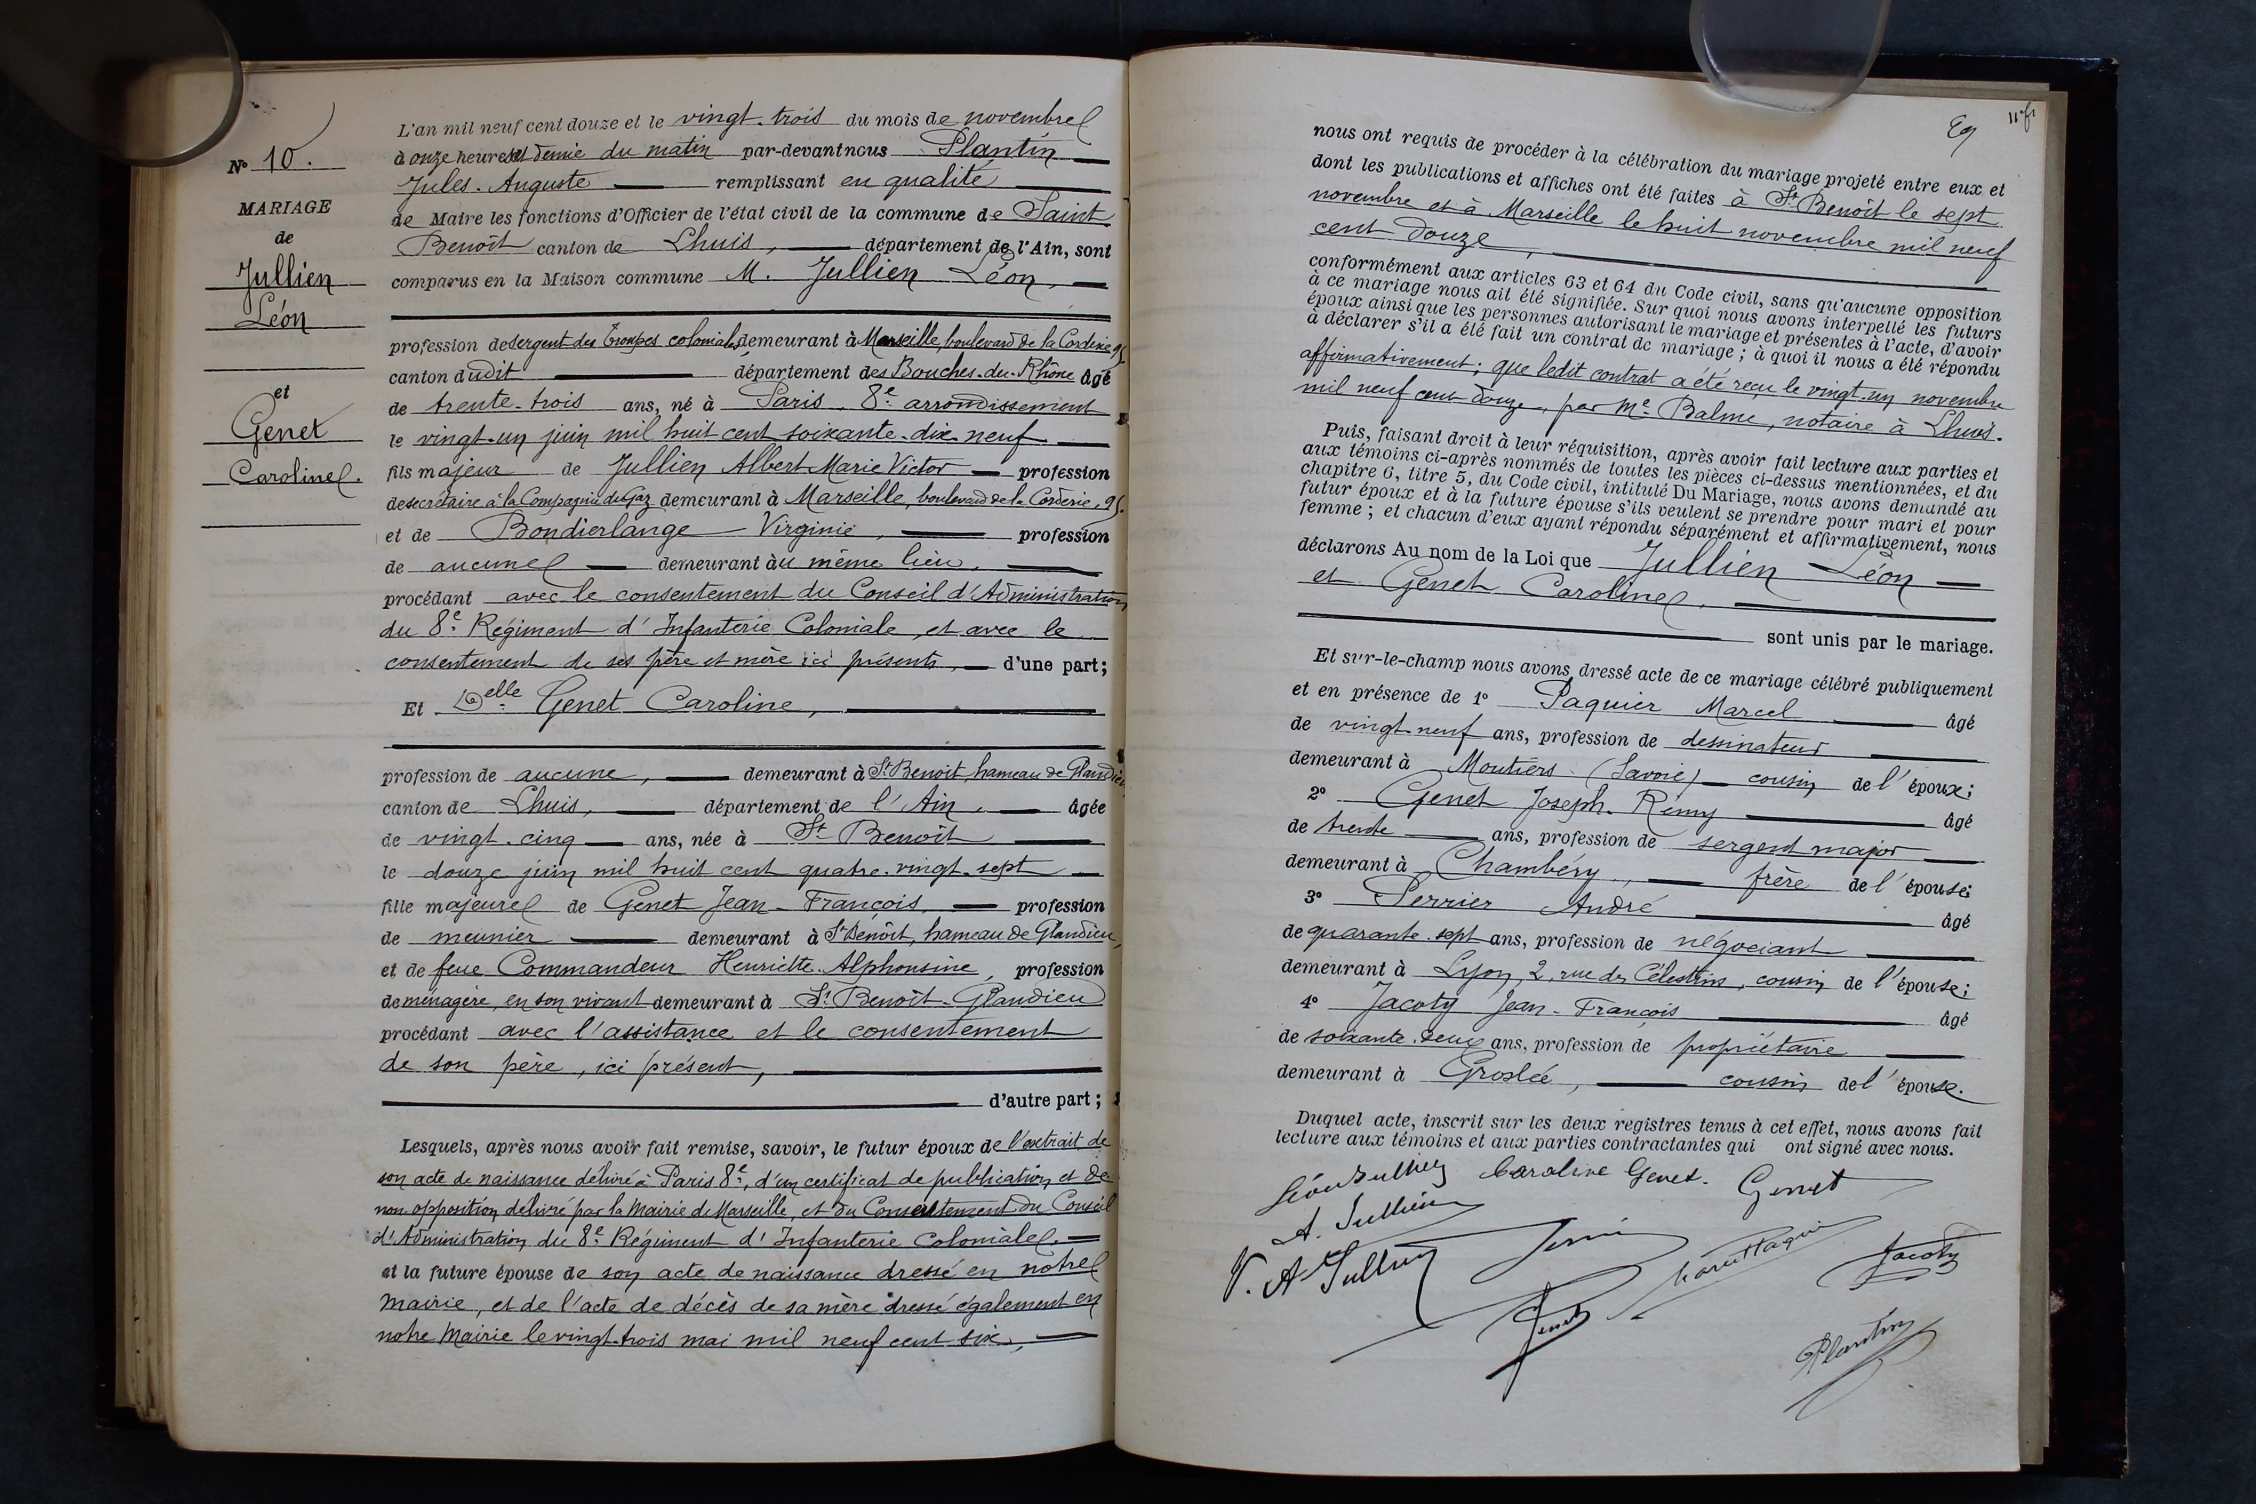 L'an mil neuf cent douze et le vingt-trois du mois de novembre
à onze heures et demie du matin par-devant nous Plantin
Jules-Auguste remplissant en qualité
de Maire les fonctions d'Officier de l'état civil de la commune de Saint
Benoît canton de Lhuis, département de l'Ain, sont
comparus en la Maison commune M. Jullien Léon,
profession de sergent des Troupes coloniales, demeurant à Marseille, boulevard de la Corderie 95
canton dudit département des Bouches-du-Rhône âgé
de trente-trois ans, né à Paris 8e arrondissement
le vingt-un juin mil huit cent soixante-dix-neuf
fils majeur de Jullien Albert Marie Victor profession
de secrétaire à la Compagnie du Gaz demeurant à Marseille, boulevard de la Corderie, 95.
et de Bondierlange Virginie, profession
de aucune demeurant au même lieu.
procédant avec le consentement du Conseil d'Administration
du 8e Régiment d'Infanterie Coloniale, et avec le
consentement de ses père et mère ici présents, d'une part;
Et Delle Genet Caroline,
profession de aucune, demeurant à St Benoit, hameau de Glandieu
canton de Lhuis, département de l'Ain, âgée
de vingt-cinq ans, née à St Benoît
le douze juin mil huit cent quatre-vingt-sept
fille majeure de Genet Jean-François profession
de meunier demeurant à St Benoît, hameau de Glandieu,
et de feue Commandeur Henriette Alphonsine, profession
de ménagère, en son vivant demeurant à St Benoît-Glandieu
procédant avec l'assistance et le consentement
de son père, ici présent,
d'autre part;
Lesquels, après nous avoir fait remise, savoir, le futur époux de l'extrait de
son acte de naissance délivré à Paris 8e, d'un certificat de publication et de
non opposition délivré par la Mairie de Marseille, et du Consentement du Conseil
d'Administration du 8e Régiment d'Infanterie Coloniale.
et la future épouse de son acte de naissance dressé en notre
Mairie, et de l'acte de décès de sa mère dressé également en
notre Mairie le vingt-trois mai mil neuf cent six,
No 10.
MARIAGE
de
Jullien
Léon
et
Genet
Caroline.
nous ont requis de procéder à la célébration du mariage projeté entre eux et
dont les publications et affiches ont été faites à St Benoît le sept
novembre et à Marseille le huit novembre mil neuf
cent douze,
conformément aux articles 63 et 64 du Code civil, sans qu'aucune opposition
à ce mariage nous ait été signifiée. Sur quoi nous avons interpellé les futurs
époux ainsi que les personnes autorisant le mariage et présentes à l'acte, d'avoir
à déclarer s'il a été fait un contrat de mariage; à quoi il nous a été répondu
affirmativement; que ledit contrat a été reçu le vingt-un novembre
mil neuf cent douze, par Me Balme, notaire à Lhuis.
Puis, faisant droit à leur réquisition, après avoir fait lecture aux parties et
aux témoins ci-après nommés de toutes les pièces ci-dessus mentionnées, et du
chapitre 6, titre 5, du Code civil, intitulé Du Mariage, nous avons demandé au
futur époux et à la future épouse s'ils veulent se prendre pour mari et pour
femme; et chacun d'eux ayant répondu séparément et affirmativement, nous
déclarons Au nom de la Loi que Jullien Léon
et Genet Caroline,
sont unis par le mariage.
Et sur-le-champ nous avons dressé acte de ce mariage célébré publiquement
et en présence de 1o Paquier Marcel âgé
de vingt-neuf ans, profession de dessinateur
demeurant à Moutiers (Savoie) cousin de l'époux;
2o Genet Joseph-Rémy âgé
de trente ans, profession de sergent major
demeurant à Chambéry, frère de l'épouse;
3o Perrier André âgé
de quarante-sept ans, profession de négociant
demeurant à Lyon, 2, rue des Célestins, cousin de l'épouse;
4o Jacoty Jean-François âgé
de soixante-deux ans, profession de propriétaire
demeurant à Groslée, cousin de l'épouse.
Duquel acte, inscrit sur les deux registres tenus à cet effet, nous avons fait
lecture aux témoins et aux parties contractantes qui ont signé avec nous.
Léon Jullien Caroline Genet. Genet
A. Jullien
V. A. Jullien
Genet Jacoty
Plantin